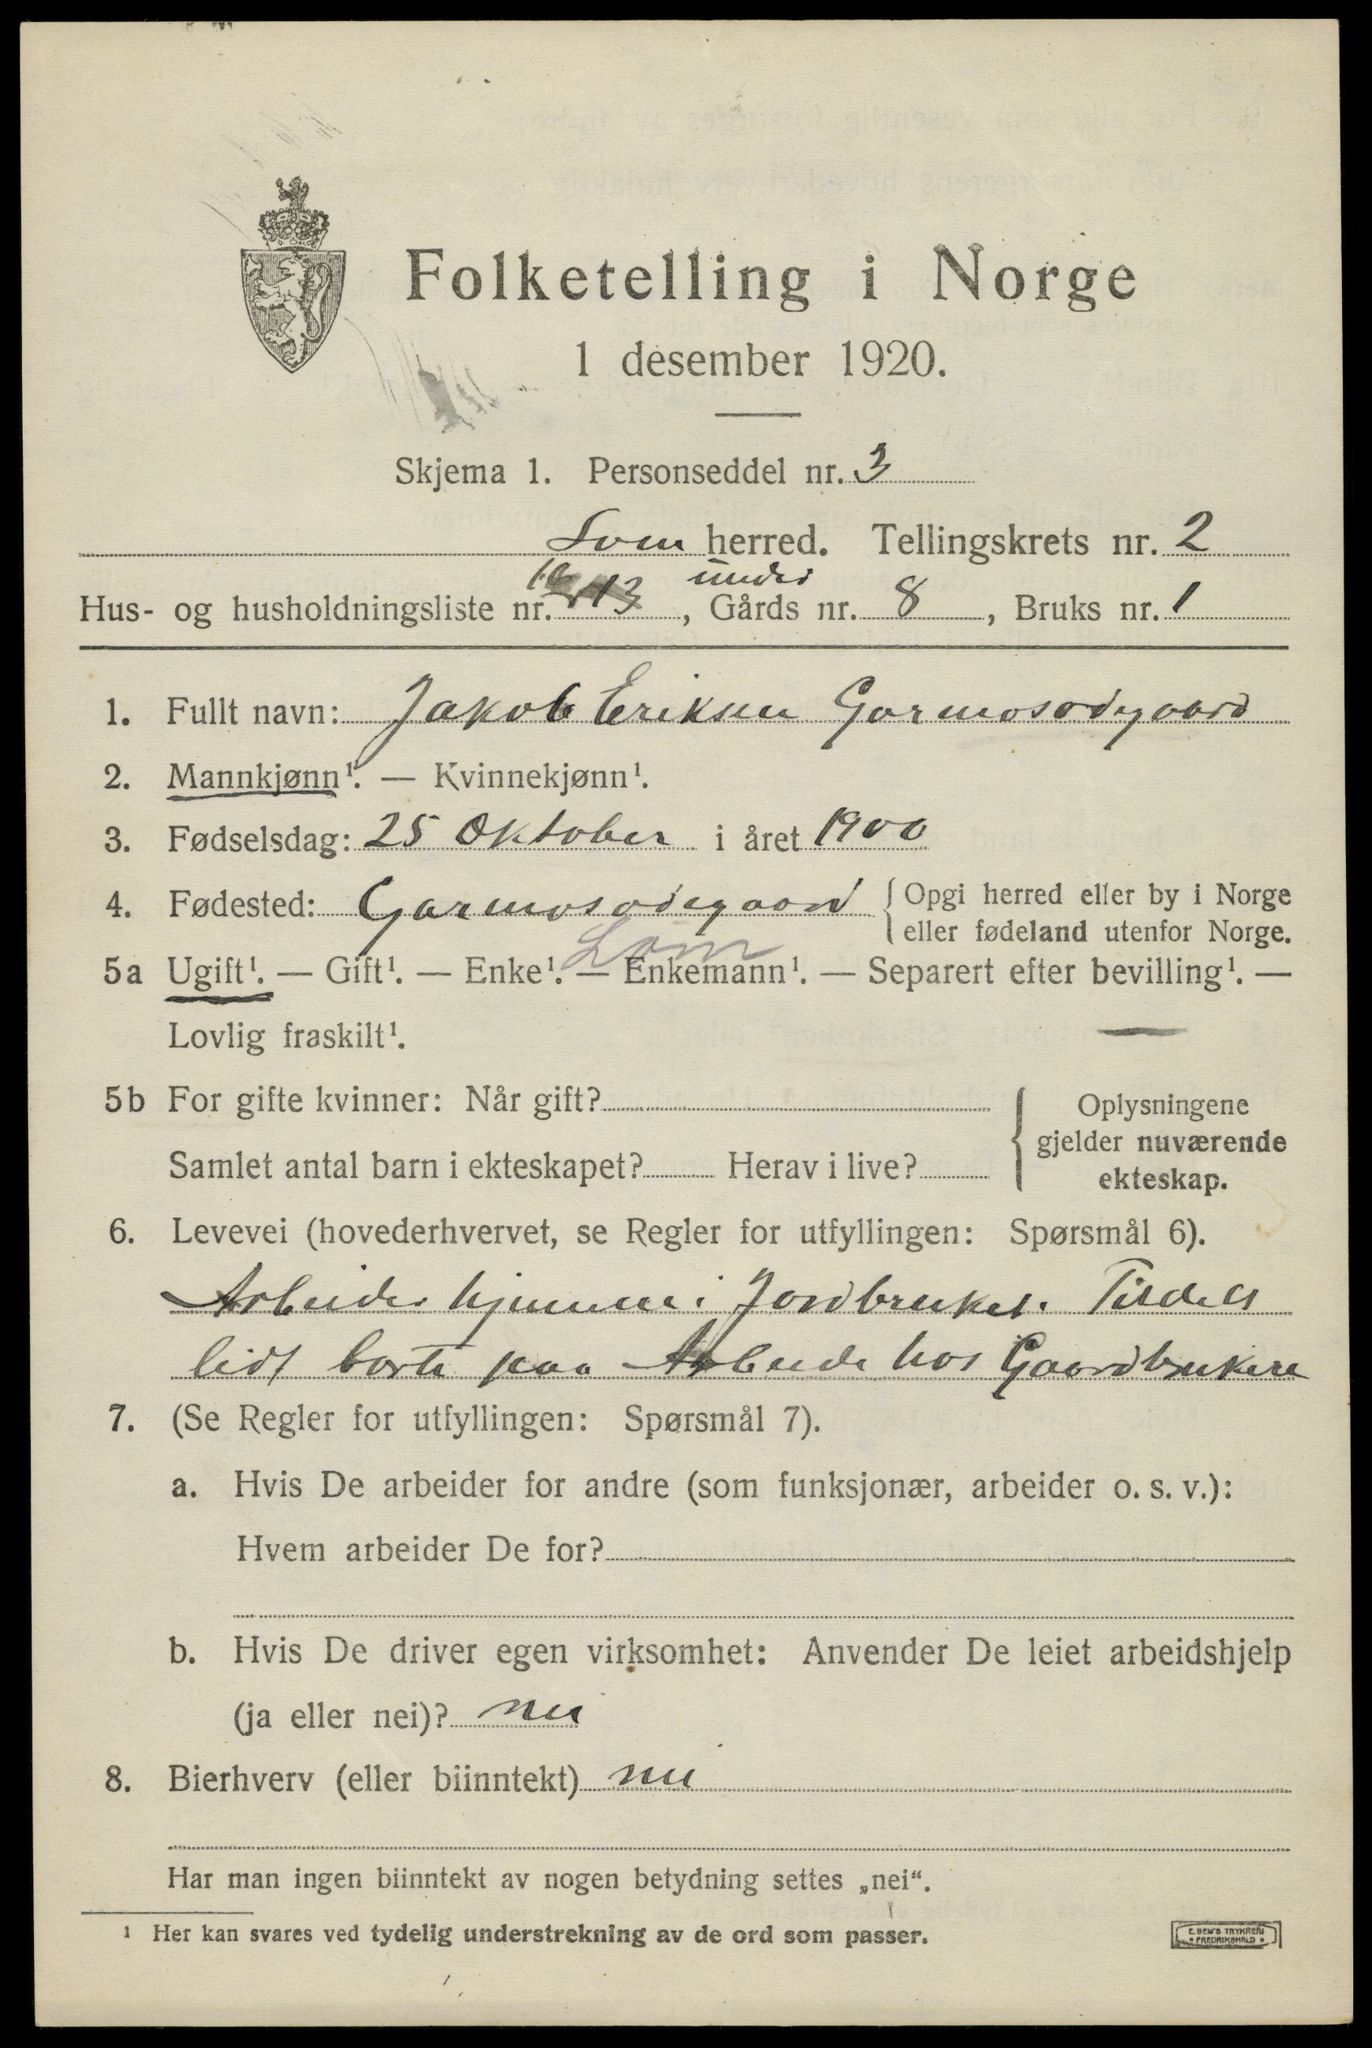 Folketelling i Norge
1 desember 1920.
Skjema 1. Personseddel nr. 3
Lom herred. Tellingskrets nr. 2
16 under
Hus- og husholdningsliste nr. 13, Gårds nr. 8, Bruks nr. 1
1. Fullt navn: Jakob Eriksen Garmosødegaard
2. Mannkjønn¹. — Kvinnekjønn¹.
3. Fødselsdag: 25 Oktober i året 1900
4. Fødested: Garmosødegaard { Opgi herred eller by i Norge
eller fødeland utenfor Norge.
Lom
5a Ugift¹. — Gift¹. — Enke¹. — Enkemann¹. — Separert efter bevilling¹. —
Lovlig fraskilt¹.
5b For gifte kvinner: Når gift?
Samlet antal barn i ekteskapet? Herav i live?
{ Oplysningene
gjelder nuværende
ekteskap.
6. Levevei (hovederhvervet, se Regler for utfyllingen: Spørsmål 6).
Arbeider hjemme i Jordbruket. Tildels
lidt borte paa Arbeide hos Gaardbrukere
7. (Se Regler for utfyllingen: Spørsmål 7).
a. Hvis De arbeider for andre (som funksjonær, arbeider o. s. v.):
Hvem arbeider De for?
b. Hvis De driver egen virksomhet: Anvender De leiet arbeidshjelp
(ja eller nei)? nei
8. Bierhverv (eller biinntekt) nei
Har man ingen biinntekt av nogen betydning settes „nei".
¹ Her kan svares ved tydelig understrekning av de ord som passer.
E. SEM'S TRYKKERI
FREDRIKSHALD